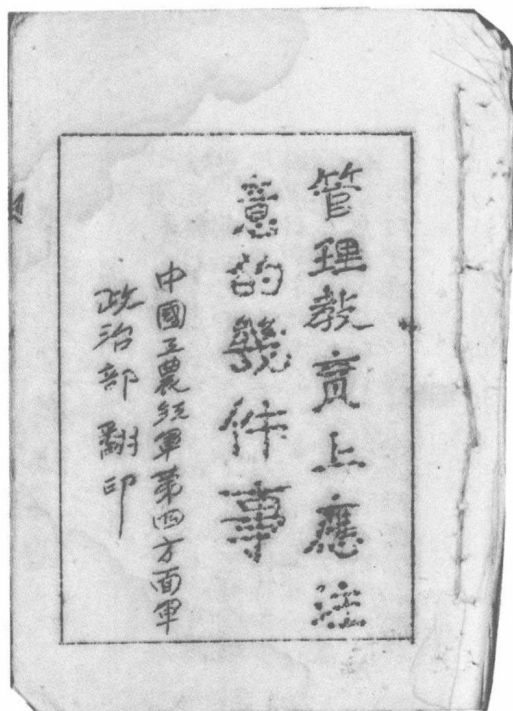 管理教育上應注
意的幾件事
中國工農紅軍第四方面軍
政治部翻印